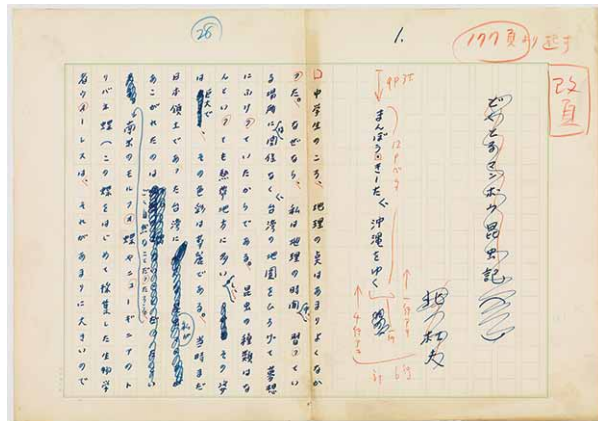 177頁より起す
改頁
1.
28
どくとるマンボウ昆虫記
北杜夫
まんぼう・きーたぐ 沖縄をゆく
中学生のころ、地理の点はあまりよくなか
った。なぜなら、私は地理の時間、習ってい
る場所に関係なく台湾の地図をひろげて夢想
にふけっていたからである。昆虫の種類はな
んといっても熱帯地方に多い。その姿
は巨大で、その色彩は多麗である。当時まだ
日本領土であった台湾に私が
あこがれたのは自然なことだったろう。
南米のモルフォ蝶やニューギニアのト
リバネ蝶(この蝶をはじめて採集した生物学
者ウォーレスは、それがあまりに大きいので